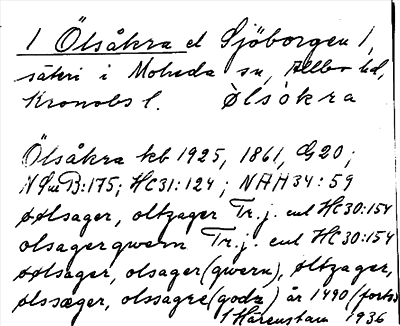 1 Ölsåkra el Sjöborgen 1,
säteri i Moheda sn, Allbo hd,
Kronobs l. Ölsòkra
Ölsåkra kb 1925, 1861, G20;
NSmB:175; HC31:124; NAH34:59
øølsager, oltzager Tr.j. enl HC30:154
olsagerqwern Tr.j. enl HC30:154
øølsager, olsager (qwern), øltzager,
ølssæger, ølssagre (godz) år 1490 (forts)
1 Härenstam 1936